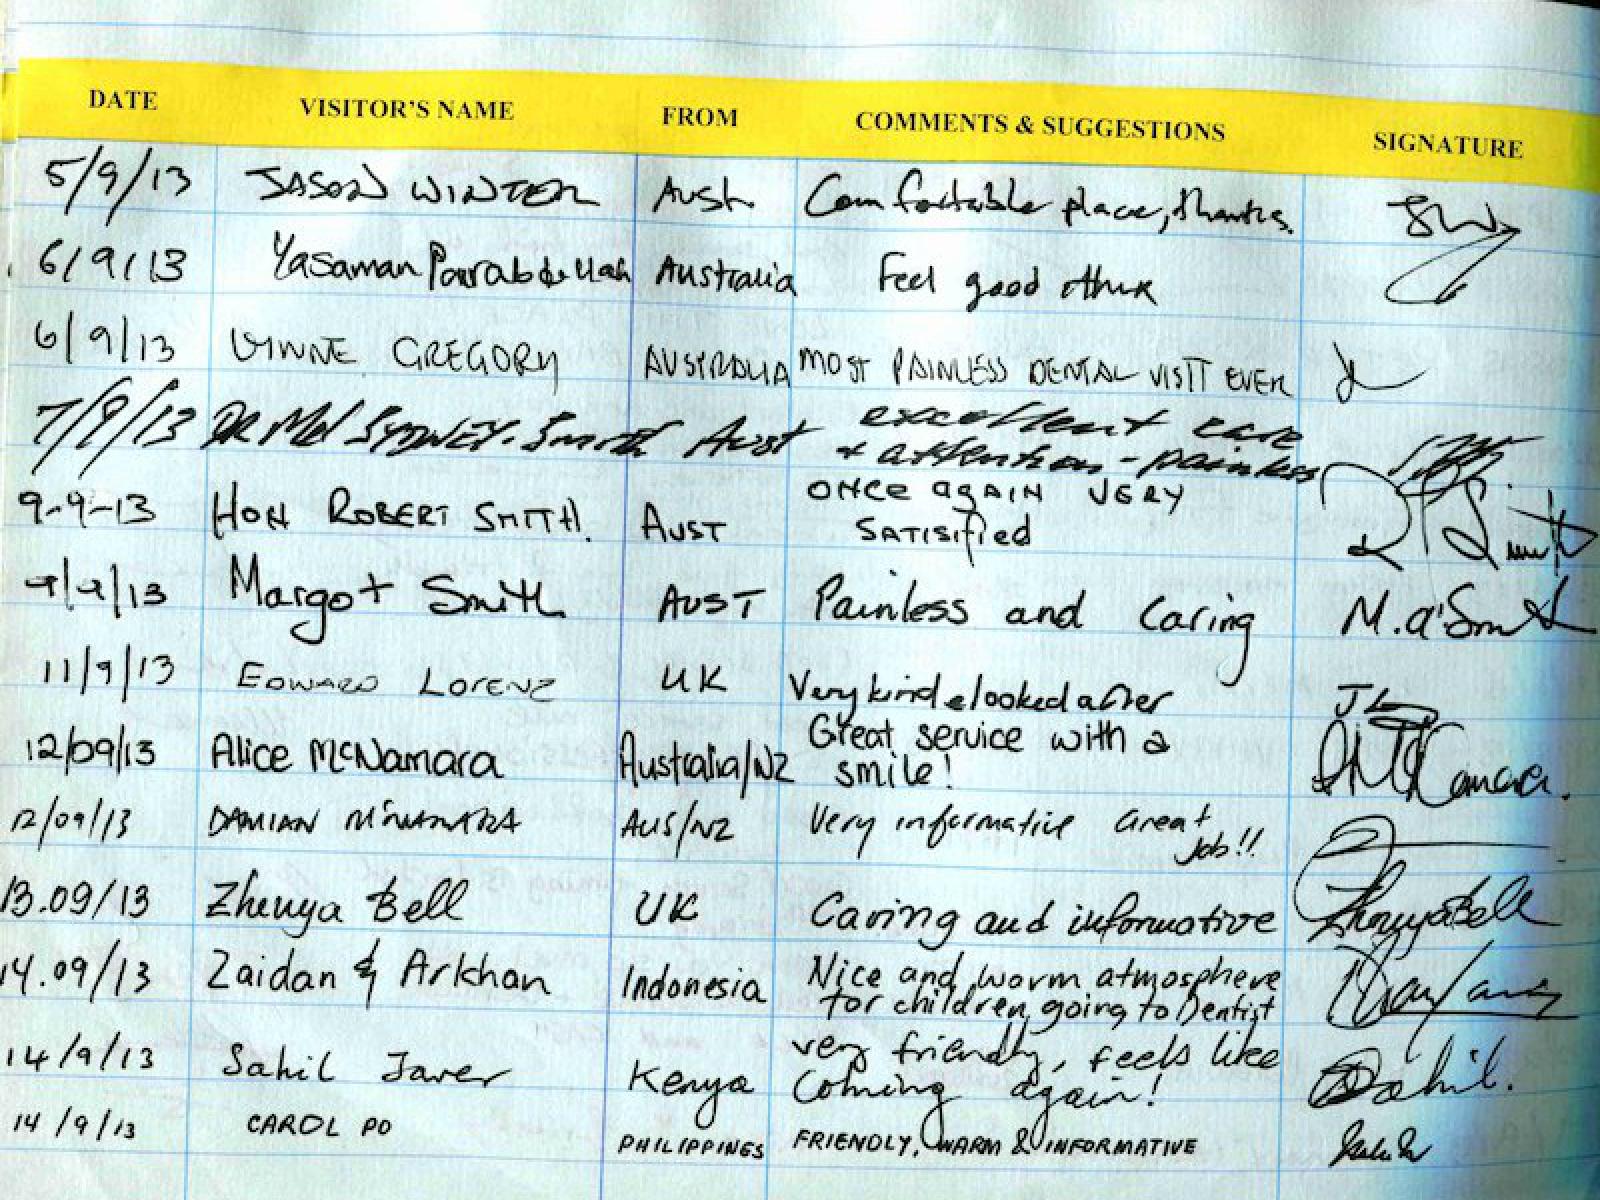 DATE VISITOR'S NAME FROM COMMENTS & SUGGESTIONS SIGNATURE
5/9/13 JASON WINTER Aust Comfortable place, thanks.
6/9/13 Yasaman Australia Feel good
6/9/13 GREGORY AUSTRALIA MOST PAINLESS DENTAL VISIT EVER
7/9/13 DR Mel SYDNEY-Smith Aust excellent care
+ attention - painless
9-9-13 HON ROBERT SMITH. AUST ONCE AGAIN VERY
SATISified
9/9/13 Margot Smith AUST Painless and Caring M.A. Smith
11/9/13 EDWARD LORENZ UK Very kind & looked after JL
12/09/13 Alice McNamara Australia/NZ Great service with a
smile!
12/09/13 DAMIAN McNAMARA AUS/NZ Very informative Great
Job!!
13.09/13 Zhenya Bell UK Caring and informative ZhenyaBell
14.09/13 Zaidan & Arkhan Indonesia Nice and warm atmosphere
for children going to Dentist
14/9/13 Sahil Javer Kenya very friendly, feels like
Coming again! Sahil.
14/9/13 CAROL PO PHILIPPINES FRIENDLY, WARM & INFORMATIVE